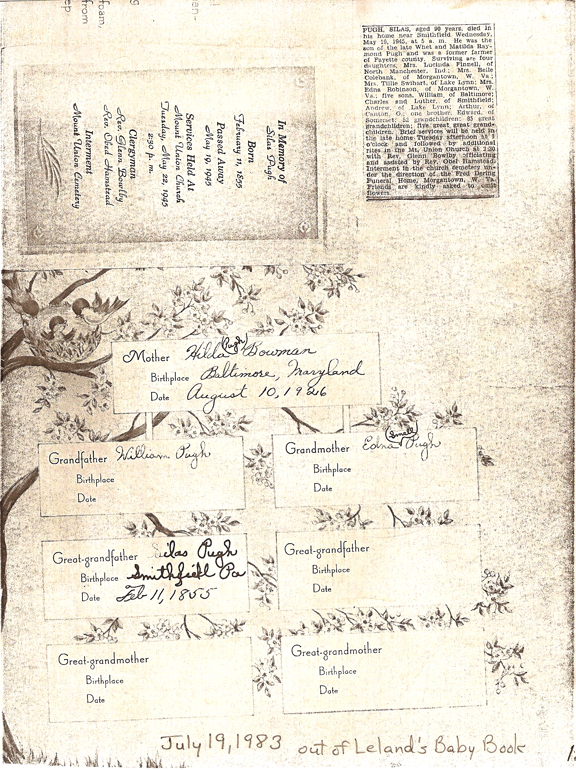 ep
from
foam,
an-
PUGH, SILAS, aged 90 years, died in
his home near Smithfield Wednesday,
May 19, 1945, at 5 a. m. He was the
son of the late Whet and Matilda Ray-
mond Pugh and was a former farmer
of Fayette county. Surviving are four
daughters, Mrs. Lucinda Finnell, of
North Manchester, Ind.; Mrs. Belle
Colebank, of Morgantown, W. Va.;
Mrs. Tillie Swihart, of Lake Lynn; Mrs.
Edna Robinson, of Morgantown, W.
Va.; five sons, William, of Baltimore;
Charles and Luther, of Smithfield;
Andrew, of Lake Lynn; Arthur, of
Canton, O.; one brother, Edward, of
Somerset; 52 grandchildren; 85 great
grandchildren; five great, great grand-
children. Brief services will be held in
the late home Tuesday afternoon at 1
o'clock and followed by additional
rites in the Mt. Union Church at 2:30
with Rev. Glenn Bowlby officiating
and assisted by Rev. Obed Hamstead.
Interment in the church cemetery un-
der the direction of the Fred Dering
Funeral Home, Morgantown, W. Va.
Friends are kindly asked to omit
flowers.
In Memory of
Silas Pugh
Born
February 11, 1855
Passed Away
May 19, 1945
Services Held At
Mount Union Church
Tuesday, May 22, 1945
2:30 p. m.
Clergyman
Rev. Glenn Bowlby
Rev. Obed Hamstead
Interment
Mount Union Cemetery
Mother Hilda (Pugh) Bowman
Birthplace Baltimore, Maryland
Date August 10, 1926
Grandfather William Pugh
Birthplace
Date
Grandmother Edna (Small) Pugh
Birthplace
Date
Great-grandfather Silas Pugh
Birthplace Smithfield Pa
Date Feb 11, 1855
Great-grandfather
Birthplace
Date
Great-grandmother
Birthplace
Date
Great-grandmother
Birthplace
Date
July 19, 1983 out of Leland's Baby Book